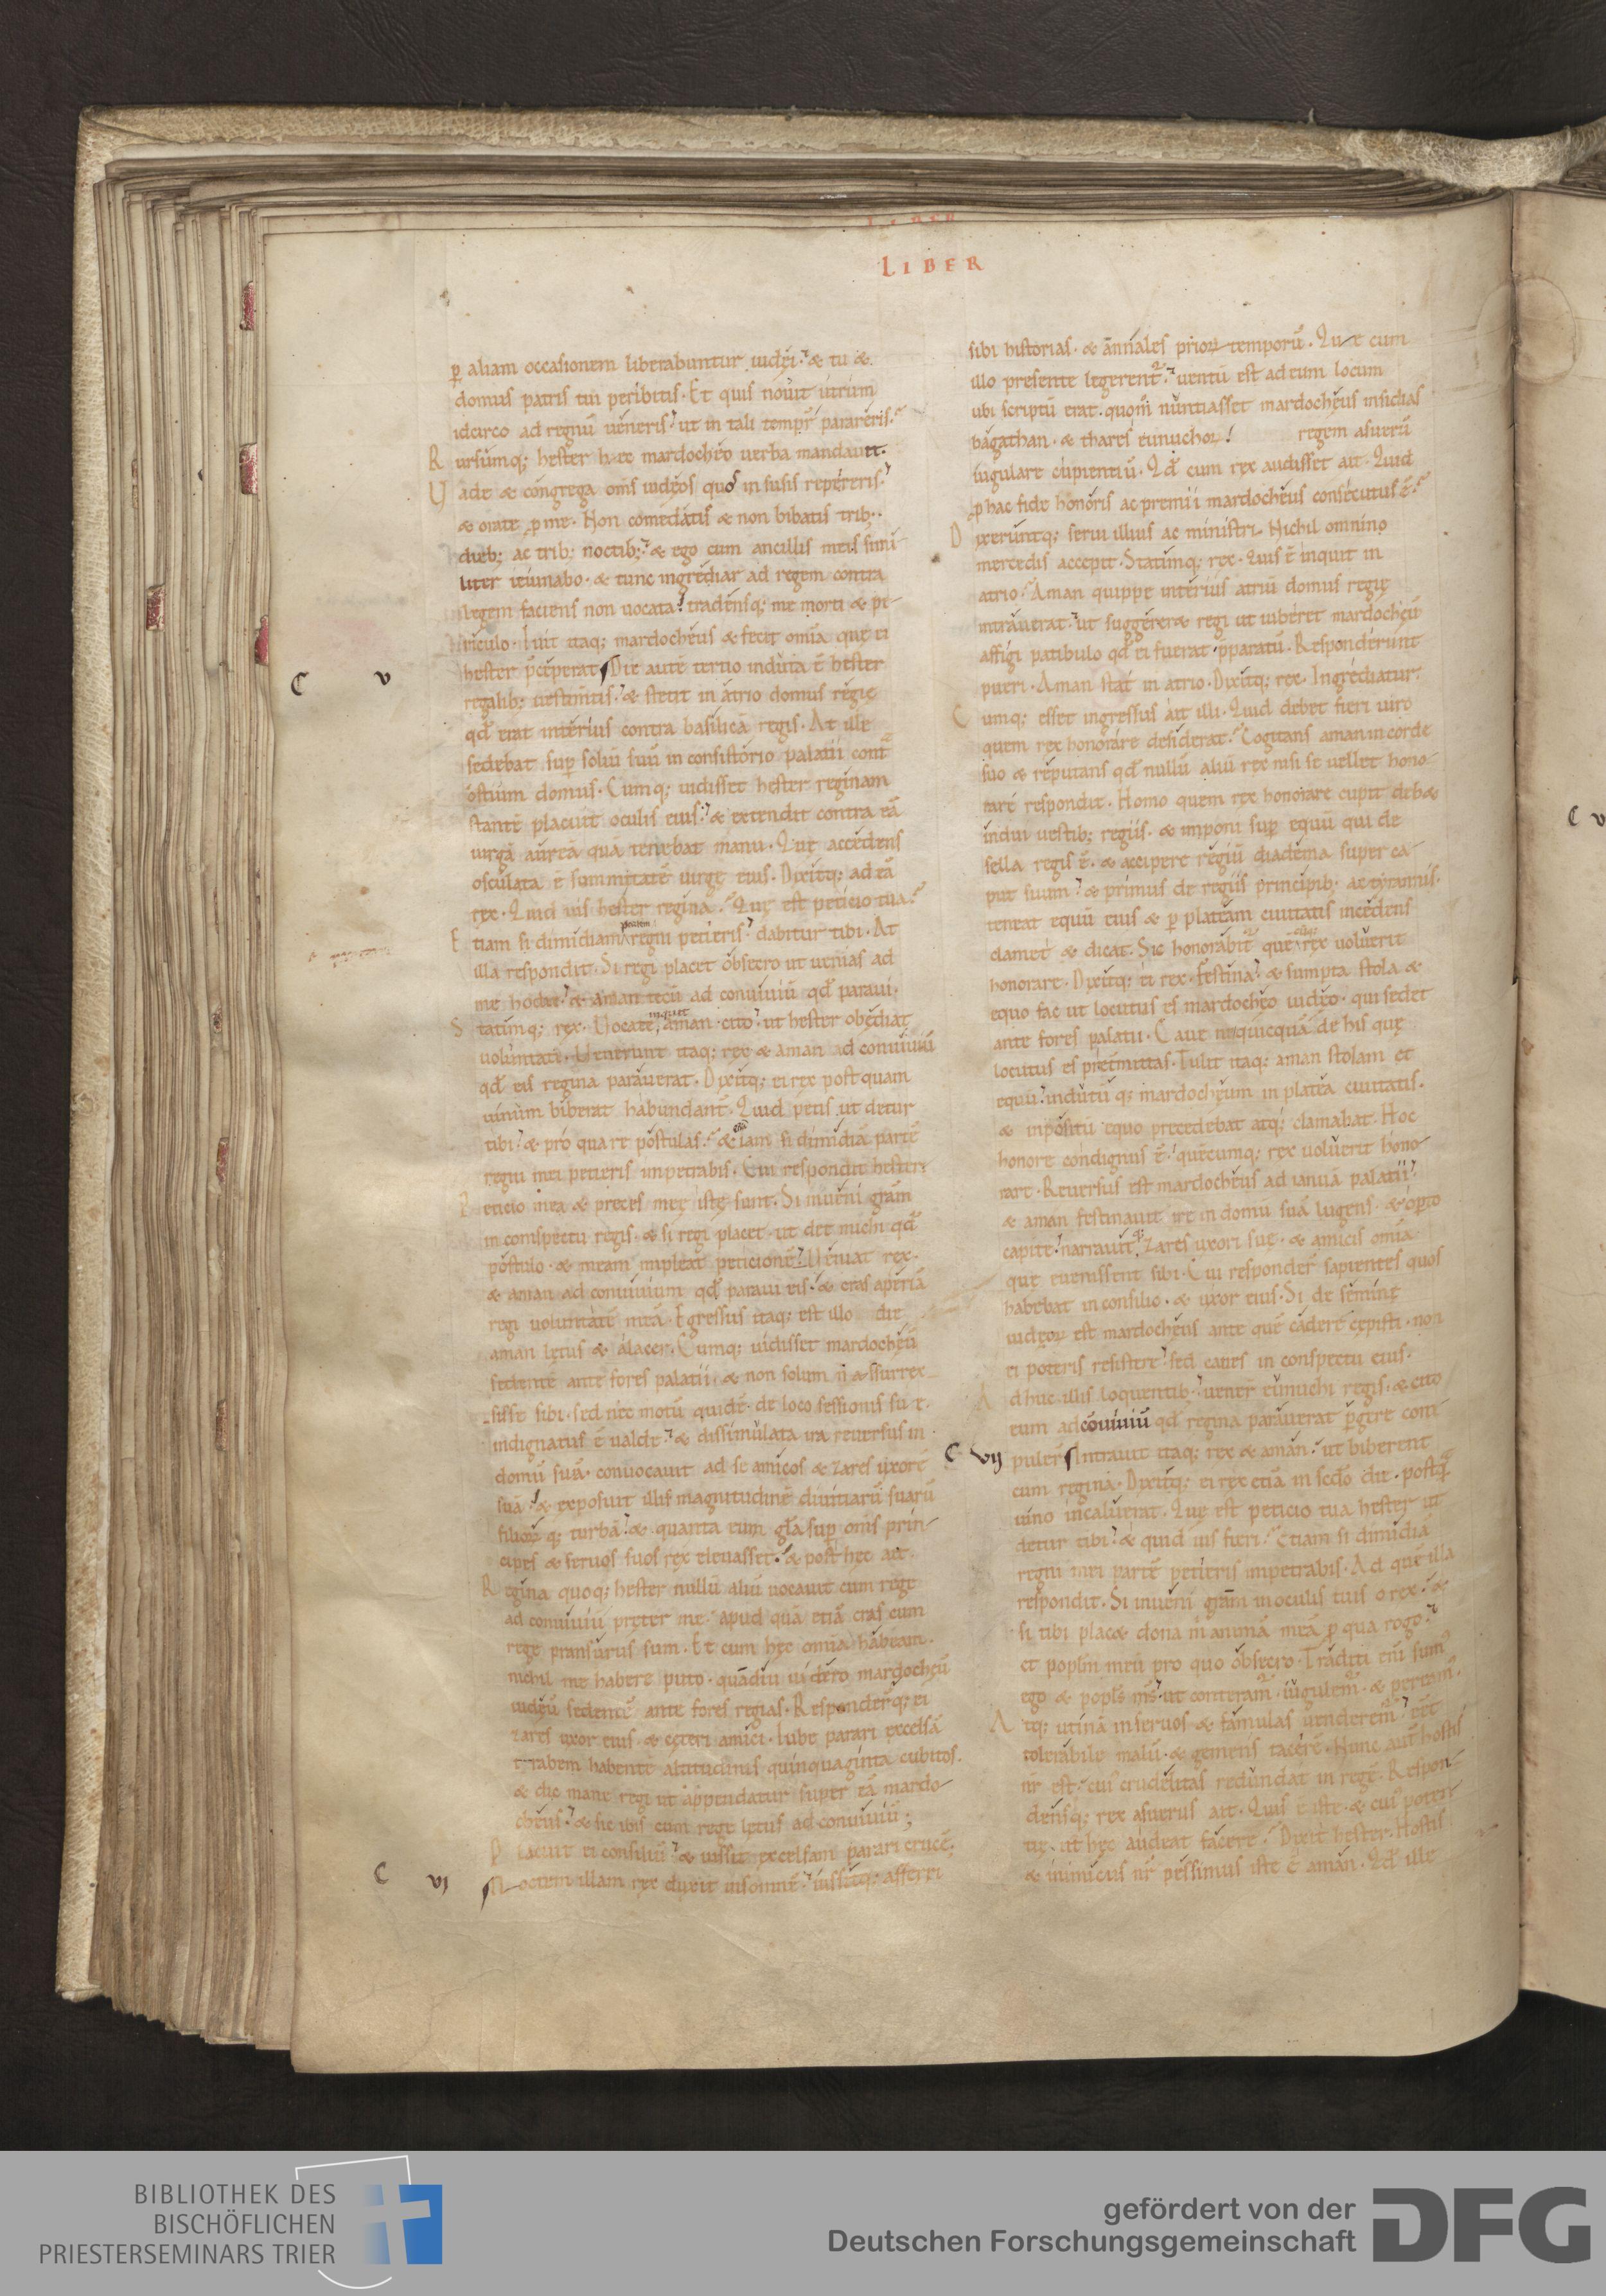 LIBER
ꝑ aliam occasionem liberabuntur iudęi· & tu &
domus patris tui peribitis. Et quis nouit utrum
idcirco ad regnū ueneris ut in tali tempr̄ parareris.
Rursumq; hester hęc mardocheo uerba mandauit.
Uade & congrega om̄s iudęos quos in susis reppereris
& orate ꝓ me. Non comedatis & non bibatis trib;
dieb; ac trib; noctib; & ego cum ancillis meis simi-
liter ieiunabo. & tunc ingrediar ad regem contra
legem faciens non uocata tradensq; me morti & pe-
riculo. Iuit itaq; mardocheus & fecit omīa quę ei
hester p̄ceperat. Die autē tertio induta ē hester
C V
regalib; uestim̄tis & stetit in atrio domus regię
qđ erat interius contra basilicā regis. At ille
sedebat suꝑ soliū suū in consistorio palatii cont̄
ostium domus. Cumq; uidisset hester reginam
stantē placuit oculis eius & extendit contra eā
uirgā aureā quā tenebat manu. Quę accedens
osculata ē summitatē uirgę eius. Dixitq; ad eā
rex. Quid uis hester regina. Quę est peticio tua.
Etiam si dimidiam partem regni petieris dabitur tibi. At
illa respondit. Si regi placet obsecro ut uenias ad
me hodie & aman tecū ad conuiuiū qđ paraui.
Statimq; rex. Uocate inquit aman cito ut hester obediat
uoluntati. Uenerunt itaq; rex & aman ad conuiuiū
qđ eis regina parauerat. Dixitq; ei rex post quam
uinum biberat habundant̄. Quid petis ut detur
tibi & pro qua re postulas. & iam si dimidiā partē
regni mei petieris impetrabis. Cui respondit hester.
Peticio mea & preces męę istę sunt. Si inueni gr̄am
in conspectu regis. & si regi placet ut det michi qđ
postulo. & meam impleat peticionē. Ueniat rex
& aman ad conuiuium qđ paraui eis & cras aperiā
regi uoluntatē meā. Egressus itaq; est illo die
aman lętus & alacer. Cumq; uidisset mardocheū
sedentē ante fores palatii. & non solum n̄ assurrex-
isse sibi. sed nec motū quidē de loco sessionis suę.
indignatus ē ualde & dissimulata ira reuersus in
domū suā. conuocauit ad se amicos & zares uxorē
suā & exposuit illis magnitudinē diuitiarū suarū
filiorꝝ q; turbā & quanta eum gl̄a suꝑ om̄s prin-
cipes & seruos suos rex eleuasset. & post hęc ait.
Regina quoq; hester nullū aliū uocauit cum rege
ad conuiuiū pręter me apud quā etiā cras cum
rege pransurus sum. Et cum hęc omīa habeam.
nichil me habere puto. quādiu uidero mardocheū
iudęū sedentē ante fores regias. Responderq; ei
zares uxor eius & cęteri amici. Iube parari excelsā
trabem habentē altitudinis quinquaginta cubitos.
& dic mane regi ut appendatur super eā mardo-
cheus & sic ibis cum rege lętus ad conuiuiū;
Placuit ei consiliū & iussit excelsam parari crucē;
C VI
Noctem illam rex duxit insomnē. iussitq; afferri
sibi historias. & annales priorꝝ temporū. Quę cum
illo presente legerent̄ uentū est ad eum locum
ubi scriptū erat. quom̄ nuntiasset mardocheus insidias
bagathan. & thares eunuchorꝝ regem asuerū
iugulare cupientiū. Qđ cum rex audisset ait. Quid
ꝓ hac fide honoris ac premii mardocheus consecutus ē.
Dixeruntq; serui illius ac ministri. Nichil omnino
mercedis accepit. Statimq; rex. Quis ē inquit in
atrio. Aman quippe interius atriū domus regię
intrauerat ut suggerer& regi ut iuberet mardocheū
affigi patibulo qđ ei fuerat p̄paratū. Responderunt
pueri. Aman stat in atrio. Dixitq; rex. Ingrediatur.
Cumq; esset ingressus ait illi. Quid debet fieri uiro
quem rex honorare desiderat. Cogitans aman in corde
suo & reputans qđ nullū aliū rex nisi se uellet hono-
rare respondit. Homo quem rex honorare cupit deb&
indui uestib; regiis. & imponi suꝑ equū qui de
sella regis ē. & accipere regiū diadema super ca-
put suum & primus de regiis principib. ac tyrannis.
teneat equū eius & ꝑ plateam ciuitatis incedens
clamet & dicat. Sic honorabit̄ quē rex uoluerit
honorare. Dixitq; ei rex. Festina & sumpta stola &
equo fac ut locutus es mardocheo iudęo. qui sedet
ante fores palatii. Caue ne quicquā de his quę
locutus es pretmittas. Tulit itaq; aman stolam et
equū indutū q; mardocheum in platea ciuitatis.
& inpositū equo precedebat atq; clamabat. Hoc
honore condignus ē quēcumq; rex uoluerit hono-
rare. Reuersus est mardocheus ad ianuā palatii
& aman festinauit ire in domū suā lugens. & oꝑto
capite narrauitq; zares uxori suę. & amicis omīa
quę euenissent sibi. Cui responder̄ sapientes quos
habebat in consilio. & uxor eius. Si de semine
iudęorꝝ est mardocheus ante quē cadere cępisti. non
ei poteris resistere sed cades in conspectu eius.
Adhuc illis loquentib. uener̄ eunuchi regis. & cito
eum ad cōuiuiū qđ regina parauerat ꝑgere com-
C VII
puler̄. Intrauit itaq; rex & aman. ut biberent
cum regina. Dixitq; ei rex etiā in scđo die. postq̄
uino incaluerat. Quę est peticio tua hester ut
detur tibi & quid uis fieri. Etiam si dimidiā
regni mei partē petieris impetrabis. Ad quē illa
respondit. Si inueni gr̄am in oculis tuis o rex. &
si tibi plac& dona m̄ animā meā ꝑ qua rogo
et popl̄m meū pro quo obsecro. Traditi em̄ sum
ego & popl̄s ms̄ ut conteram̄. iugulem̄. & peream̄.
Atq; utinā in seruos & famulas uenderem̄ eēt
tolerabile malū. & gemens tacerē. Nunc aut̄ hostis
nr̄ est. cui crudelitas redundat in regē. Respon-
densq; rex asuerus ait. Quis ē iste. & cui poten-
tię. ut hęc audeat facere. Dixit hester. Hostis
& inimicus nr̄ pessimus iste ē aman. Qđ ille
C V
BIBLIOTHEK DES
BISCHÖFLICHEN
PRIESTERSEMINARS TRIER
gefördert von der
Deutschen Forschungsgemeinschaft
DFG